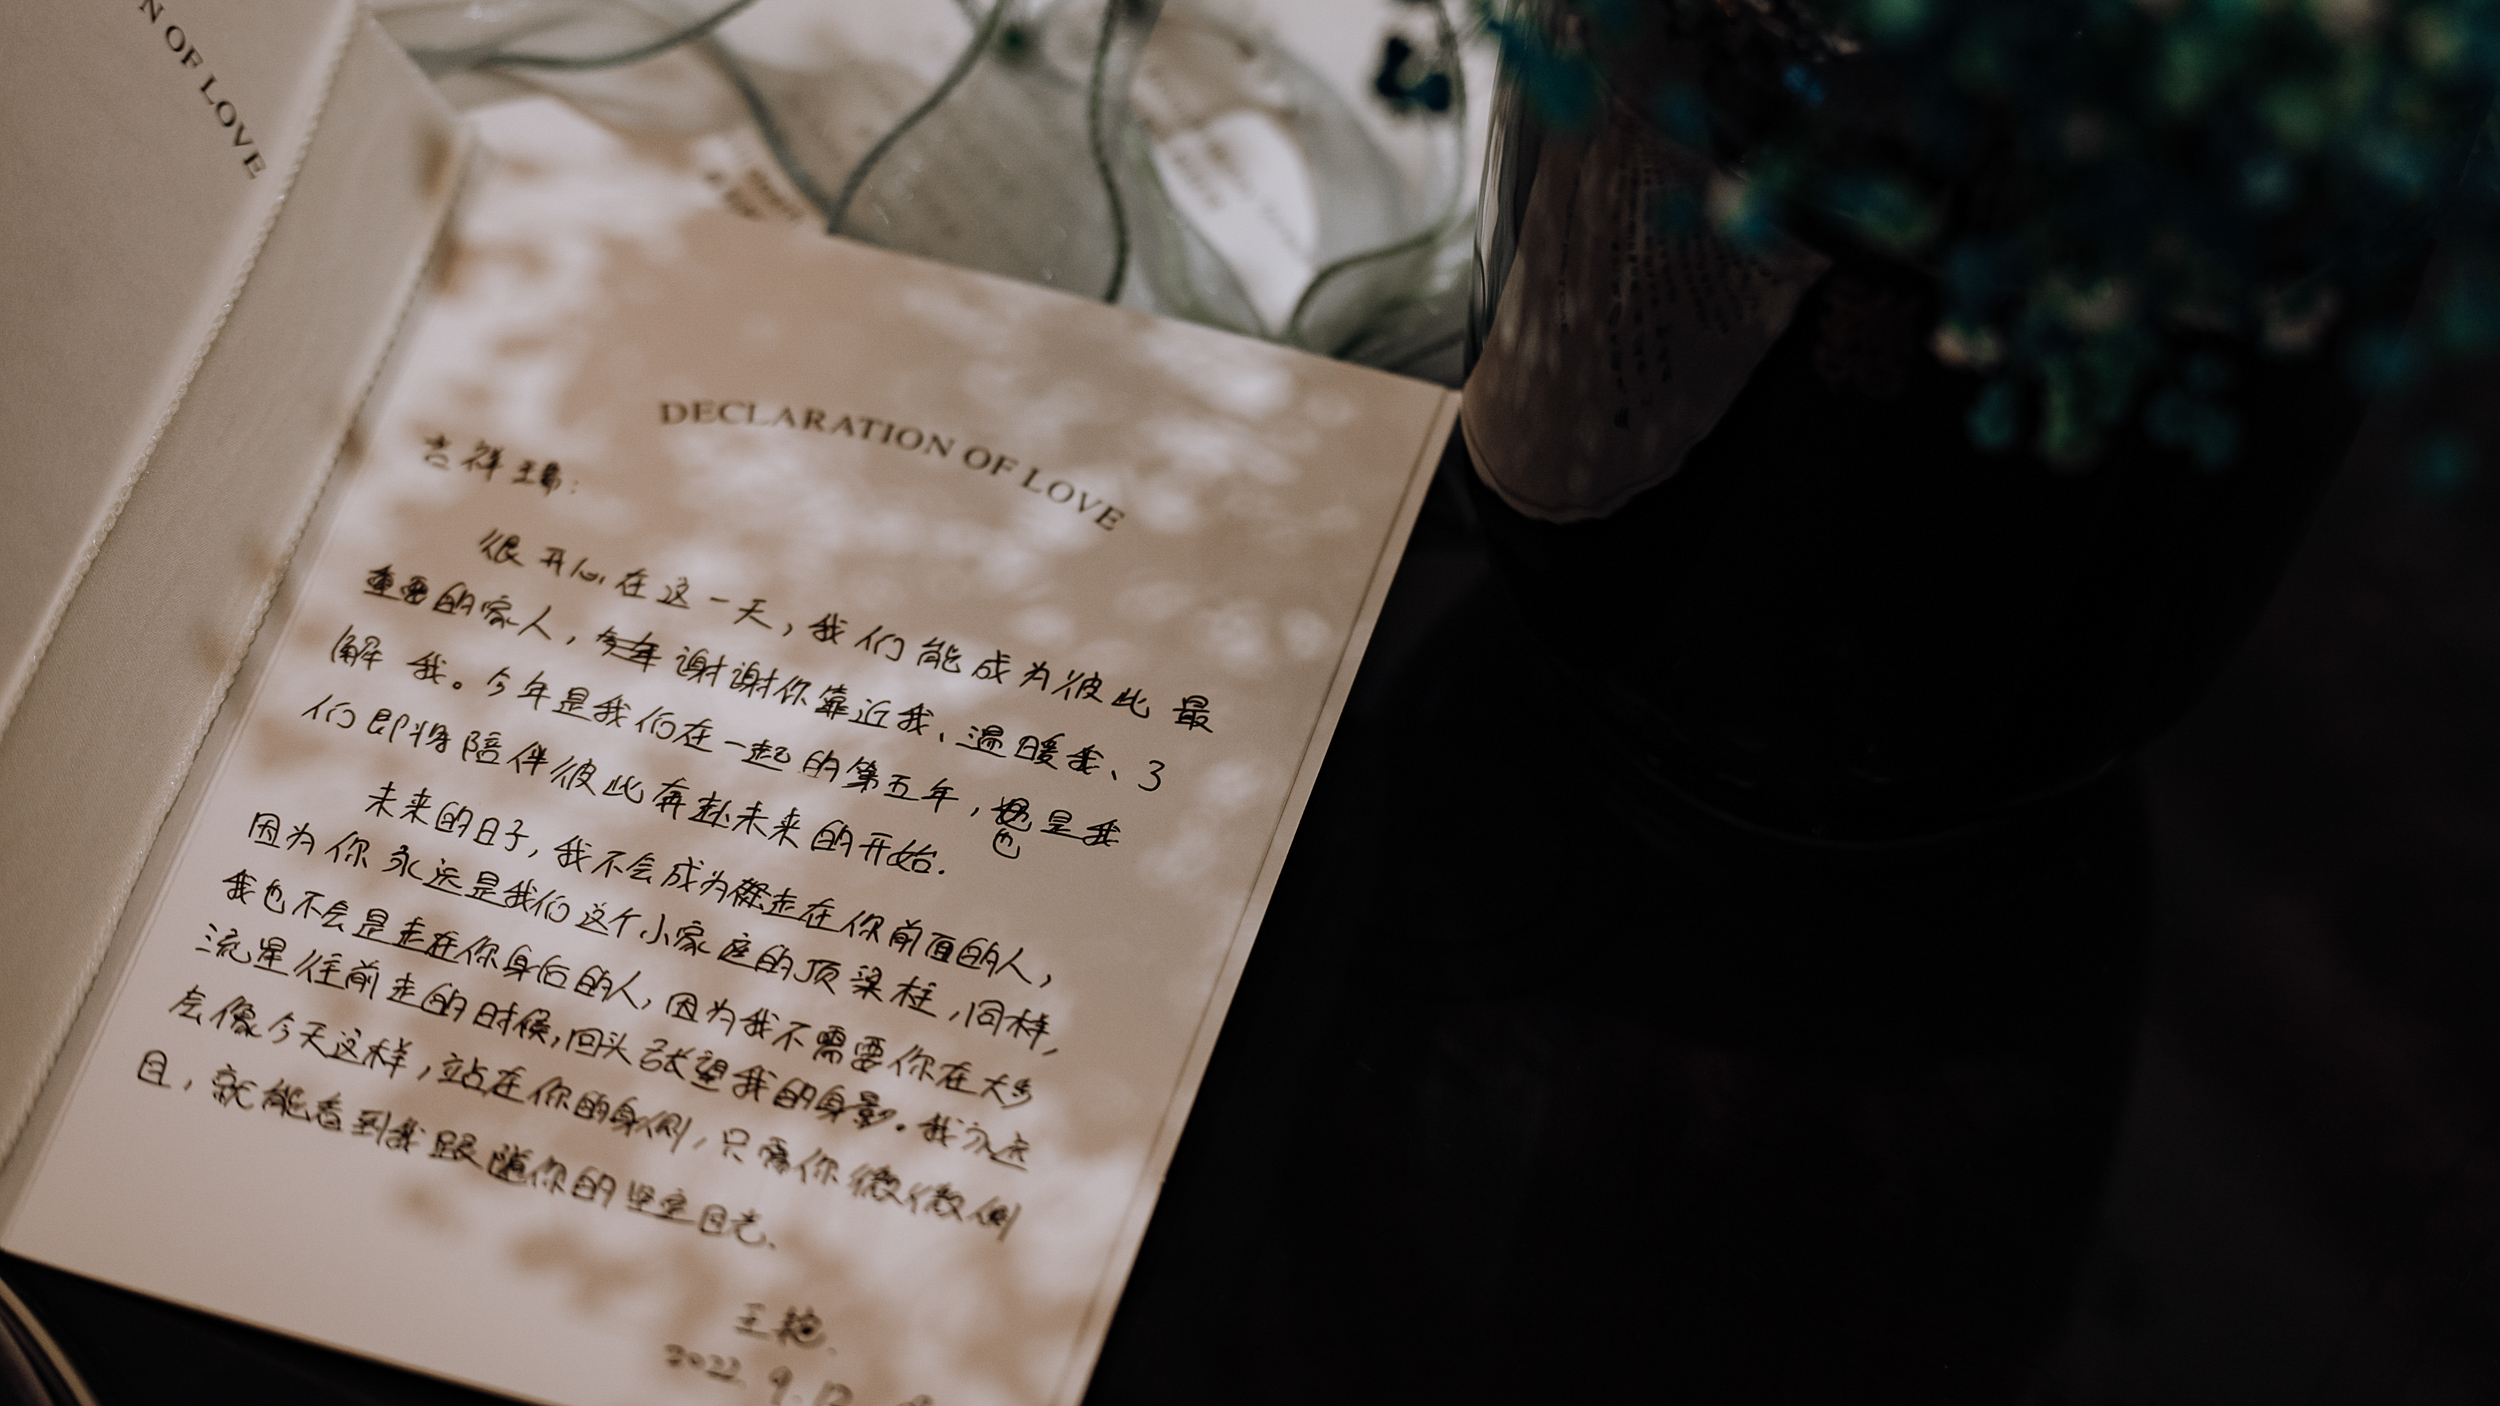 N OF LOVE
DECLARATION OF LOVE
吉祥
很开心在这一天，我们能成为彼此最
重要的家人，谢谢你靠近我、温暖我、了
解我。今年是我们在一起的第五年，也是我
们即将陪伴彼此奔赴未来的开始.
未来的日子，我不会成为走在你前面的人，
因为你永远是我们这个小家庭的顶梁柱，同样，
我也不会是走在你身后的人，因为我不需要你在大步
流星往前走的时候，回头张望我的身影。我永远
会像今天这样，站在你的身侧，只需你微微侧
目，就能看到我跟随你的坚定目光.
王艳.
2022.9.12